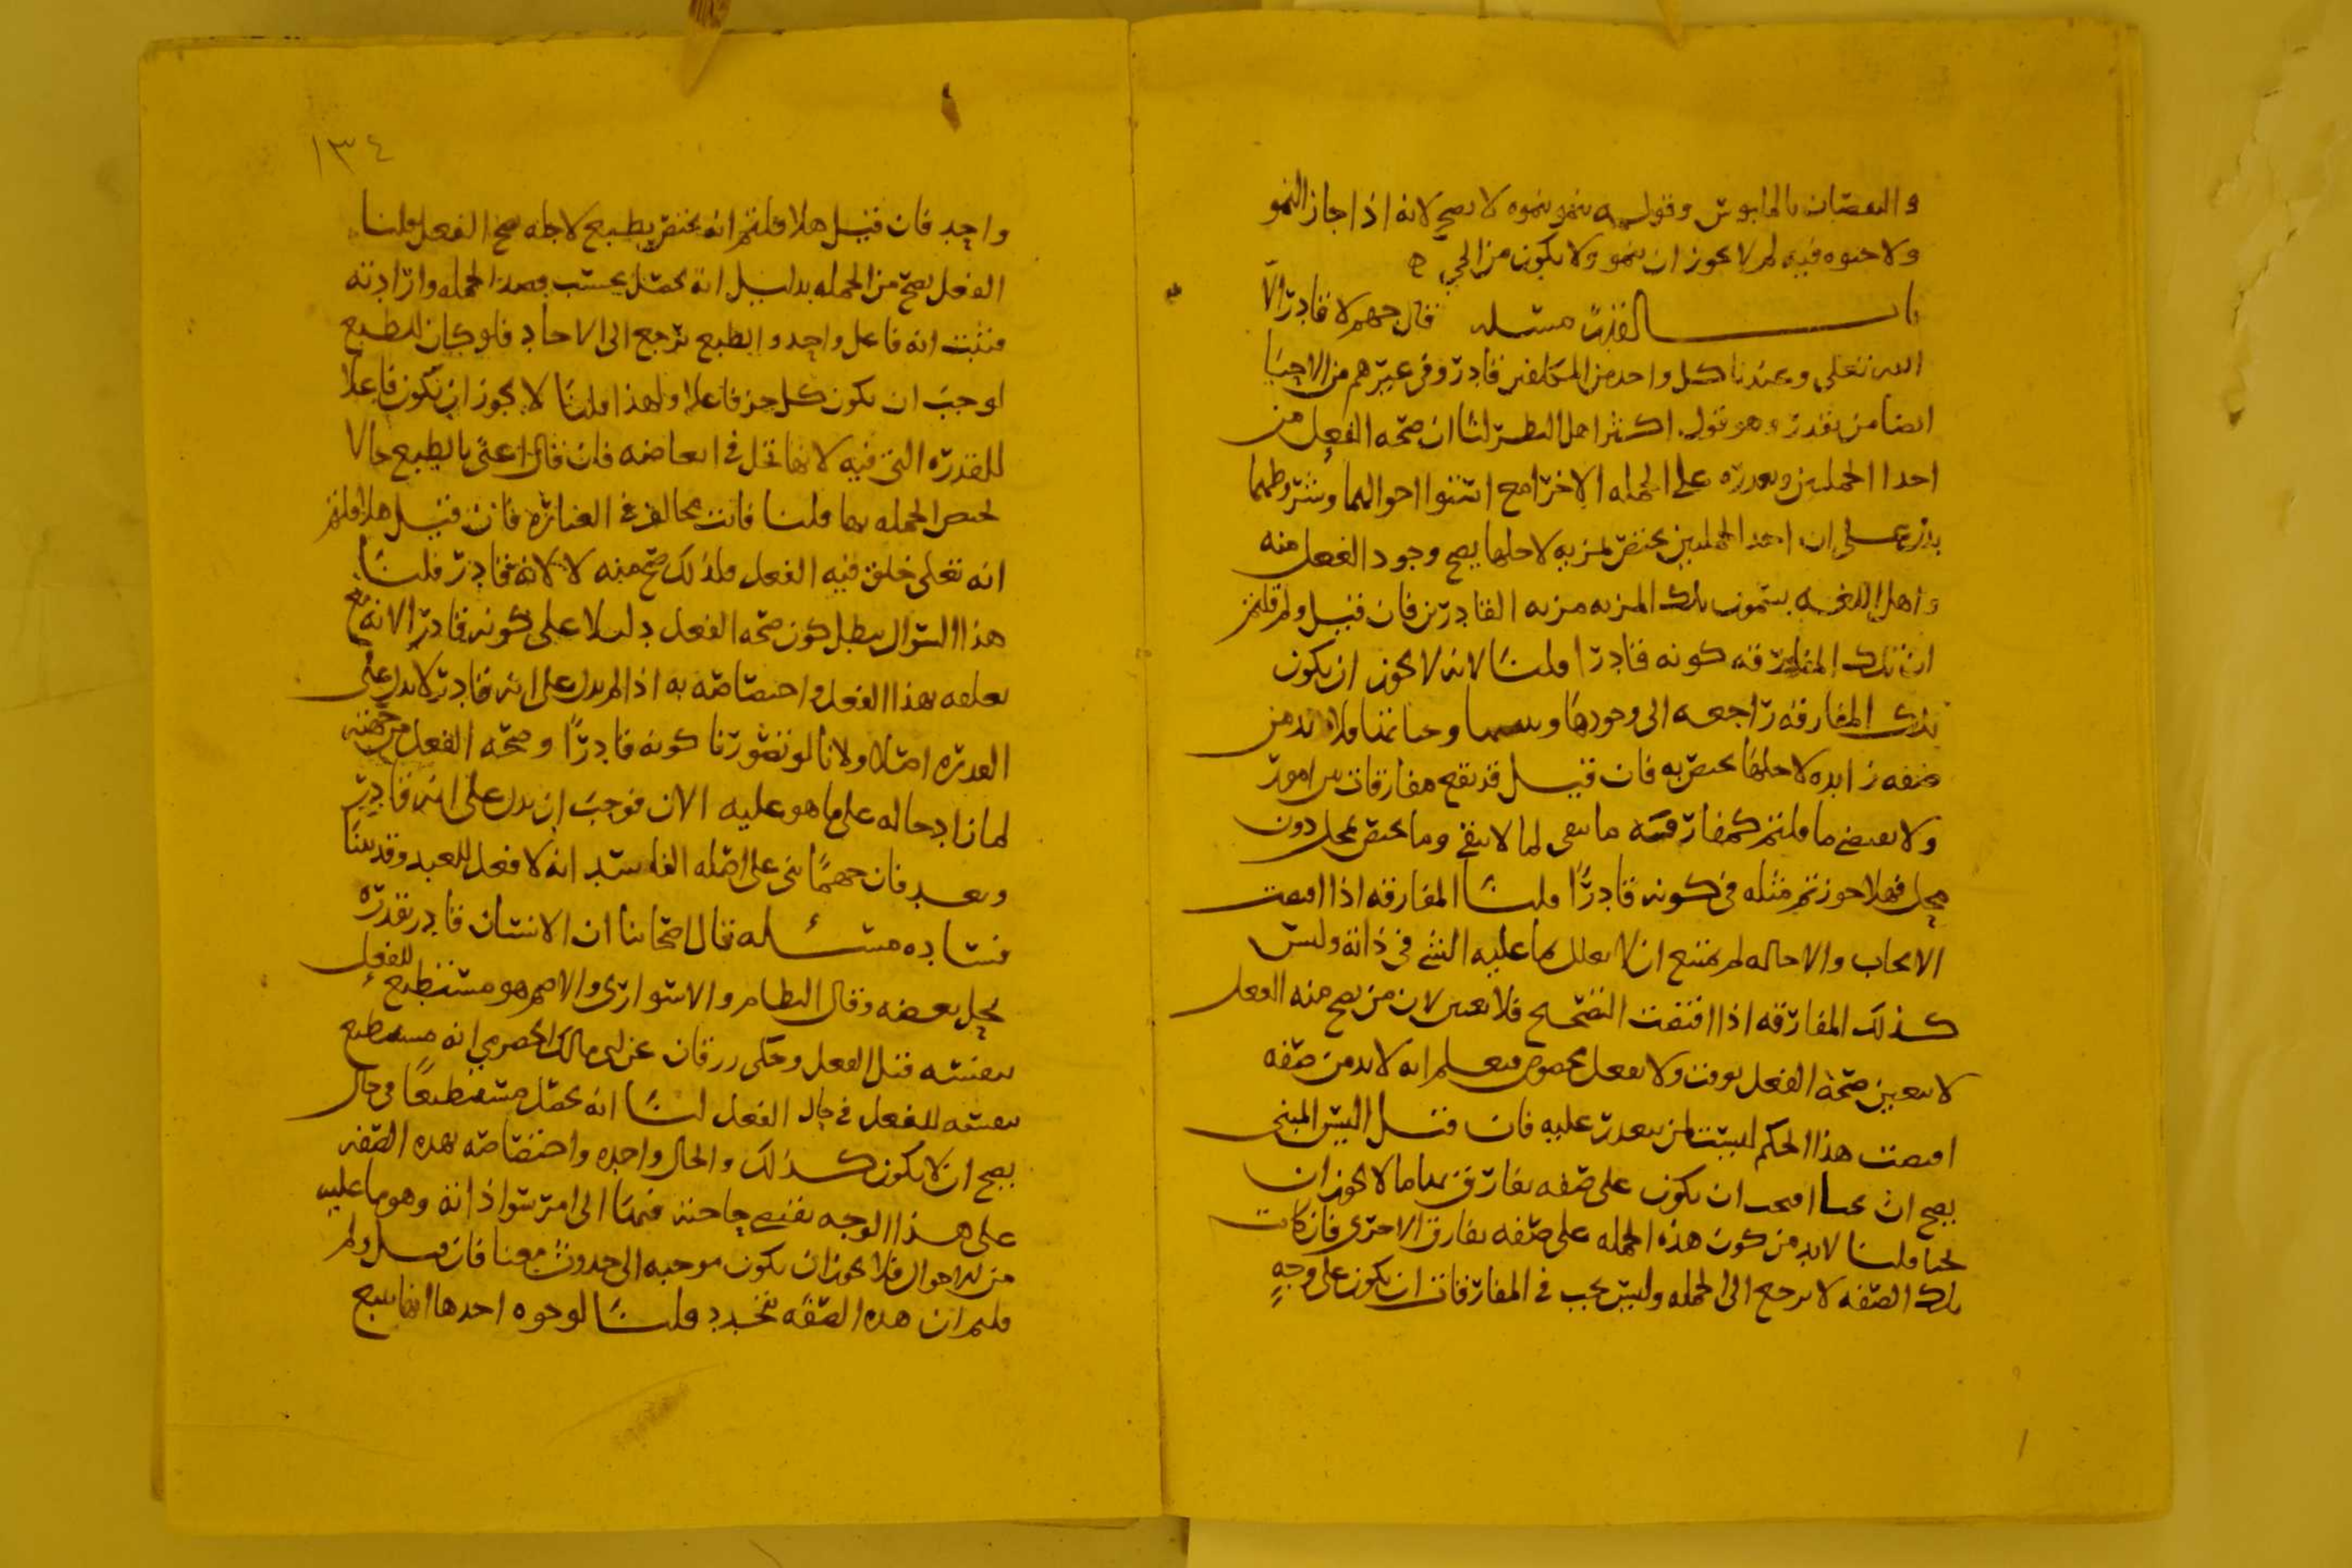 والنقصان بالحابوس وقوله ينمو بنموه لا يصح لانه اذا جاز النمو
ولا حيوه فيه لم لا يجوز ان ينمو ولا يكون من الحي ه
باب القدره مسئله قال جهم لا قادر الا
الله تعلى وعندنا كل واحد من المكلفين قادر وفي غيرهم من الاحيا
ايضا من يقدر وهو قول اكثر اهل النظر لنا ان صحه الفعل من
احدا الجملتين وتعذره على الجمله الاخرا مع استوا احوالهما وشروطهما
يدل على ان احد الجملتين يختص لمزيه لاجلها يصح وجود الفعل منه
واهل اللغه يسمون تلك المزيه مزيه القادرين فان قيل ولم قلتم
ان تلك المفارقه كونه قادرا قلنا لانه لا يجوز ان يكون
تلك المفارقه راجعه الى وجودها وحياتنا فلا بد من
صفه زايده لاجلها يختص به فان قيل قد تقع مفارقات بين امور
ولا يقتضي ما قلتم كمفارقه ما يبقى لما لا يبقى وما يختص بمحل دون
محل فهلا جوزتم مثله في كونه قادرًا قلنا المفارقه اذا اقتضت
الايجاب والاحاله لم يمتنع ان لا يعلل بما عليه الشي في ذاته وليس
كذلك المفارقه اذا اقتضت التصحيح فلا يعين لان من يصح منه الفعل
لا يتعين صحه الفعل بوقت ولا بفعل مخصوص فيعلم انه لا بد من صفه
اقتضت هذا الحكم ليست لمن يتعذر عليه فان قيل اليس المبنى
يصح ان يحيا افيجب ان يكون على صفه يفارق بها ما لا يجوز ان
يحيا قلنا لا بد من كون هذه الجمله على صفه يفارق الاخرى فان كانت
تلك الصفه لا يرجع الى الجمله وليس يجب في المفارقات ان يكون على وجه
١٣٤
واحد فان قيل هلا قلتم انه يختص بطبع لاجله صح الفعل قلنا
الفعل يصح من الجمله بدليل انه يحصل بحسب قصد الجمله وارادته
فثبت انه فاعل واحد والطبع يرجع الى الاحاد فلو كان للطبع
لوجب ان يكون كل جز فاعلا ولهذا قلنا لا يجوز ان يكون فاعلا
للقدره التي فيه لانها تحل في ابعاضه فان قال اعني بالطبع حالا
يختص الجمله بها قلنا فانت مخالف في العباره فان قيل هلا قلتم
انه تعلى خلق فيه الفعل فلذلك صح منه لا لانه قادر قلنا
هذا السوال يبطل كون صحه الفعل دليلا على كونه قادرا لانه مع
تعلقه بهذا الفعل واختصاصه به اذا لم يدل على انه قادر لا يدل على
القدره اصلا ولانا لو تصورنا كونه قادرًا وصحه الفعل من جهته
لما زاد حاله على ما هو عليه الان فوجب ان يدل على انه قادر
وبعد فان جهمًا بنى على اصله الفاسد انه لا فعل للعبد وقد بينا
فساده مسئله قال اصحابنا ان الانسان قادر بقدره
تحل بعضه وقال النظام والاسوارى والاصم هو مستطيع للفعل
بنفسه قبل الفعل وحكى زرقان عن ابى مالك الحضرمي انه مستطيع
بنفسه للفعل في حال الفعل لنا انه يحصل مستطيعًا في حال
يصح ان لا يكون كذلك والحال واحده واختصاصه بهذه الصفه
على هذا الوجه يقتضي حاجته فيها الى امر سوا ذاته وهو ما عليه
من الاحوال فلا يجوز ان يكون موجبه الى حدوث معنا فان قيل ولم
قلتم ان هذه الصفه تتجدد قلنا لوجوه احدها انها تتبع